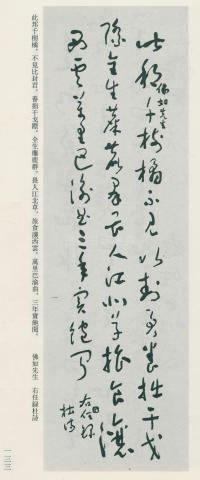 佛如先生
此邦千樹橘不見比封君養拙干戈
際全生麋鹿群畏人江北草旅食瀼
西雲萬里巴渝曲三年實飽聞
右任錄
杜詩
此邦千樹橘，不見比封君。養拙干戈際，全生麋鹿群。畏人江北草，旅食瀼西雲。萬里巴渝曲，三年實飽聞。　佛如先生　右任錄杜詩
一三三